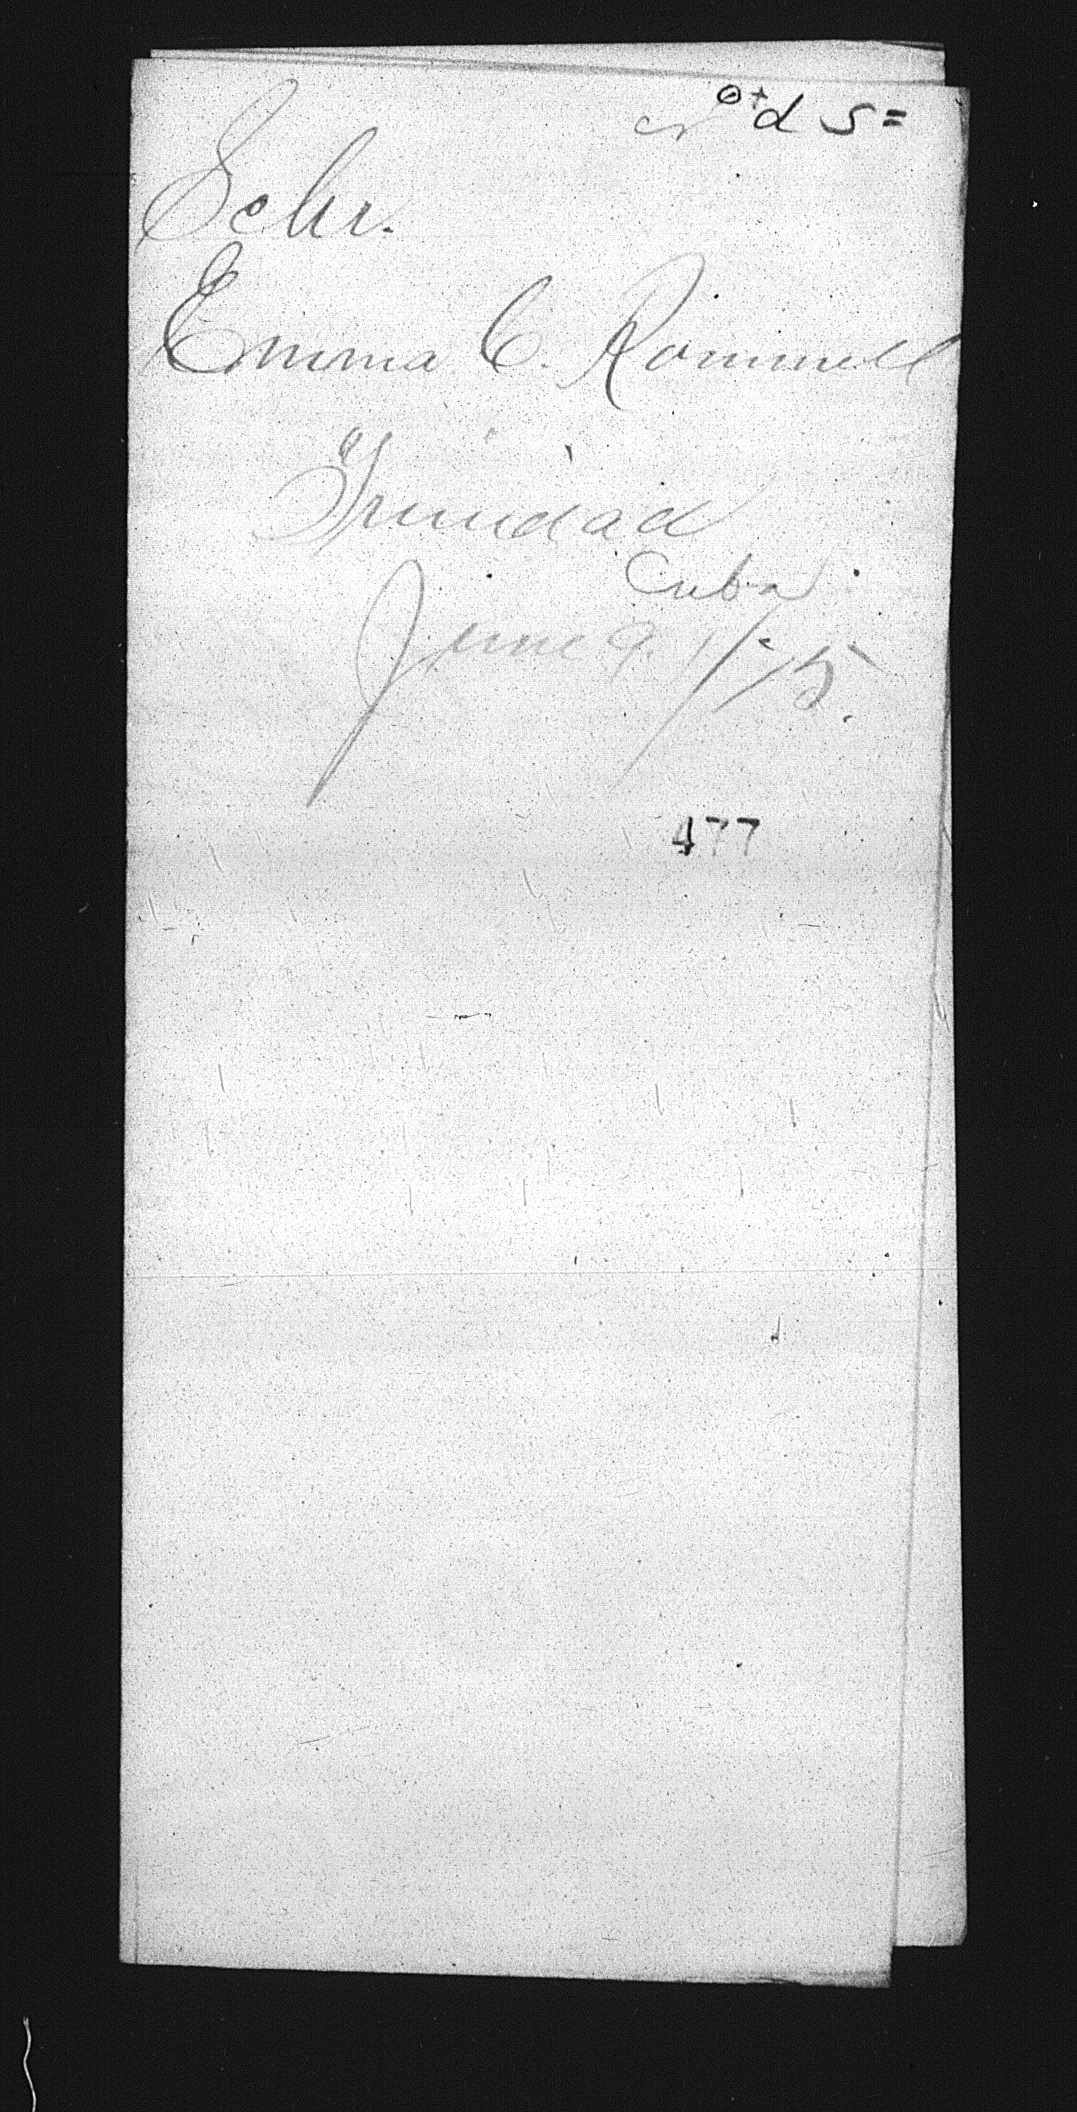 Schr.
Emma C. Rommell
Trinidad
Cuba
June 9.
477